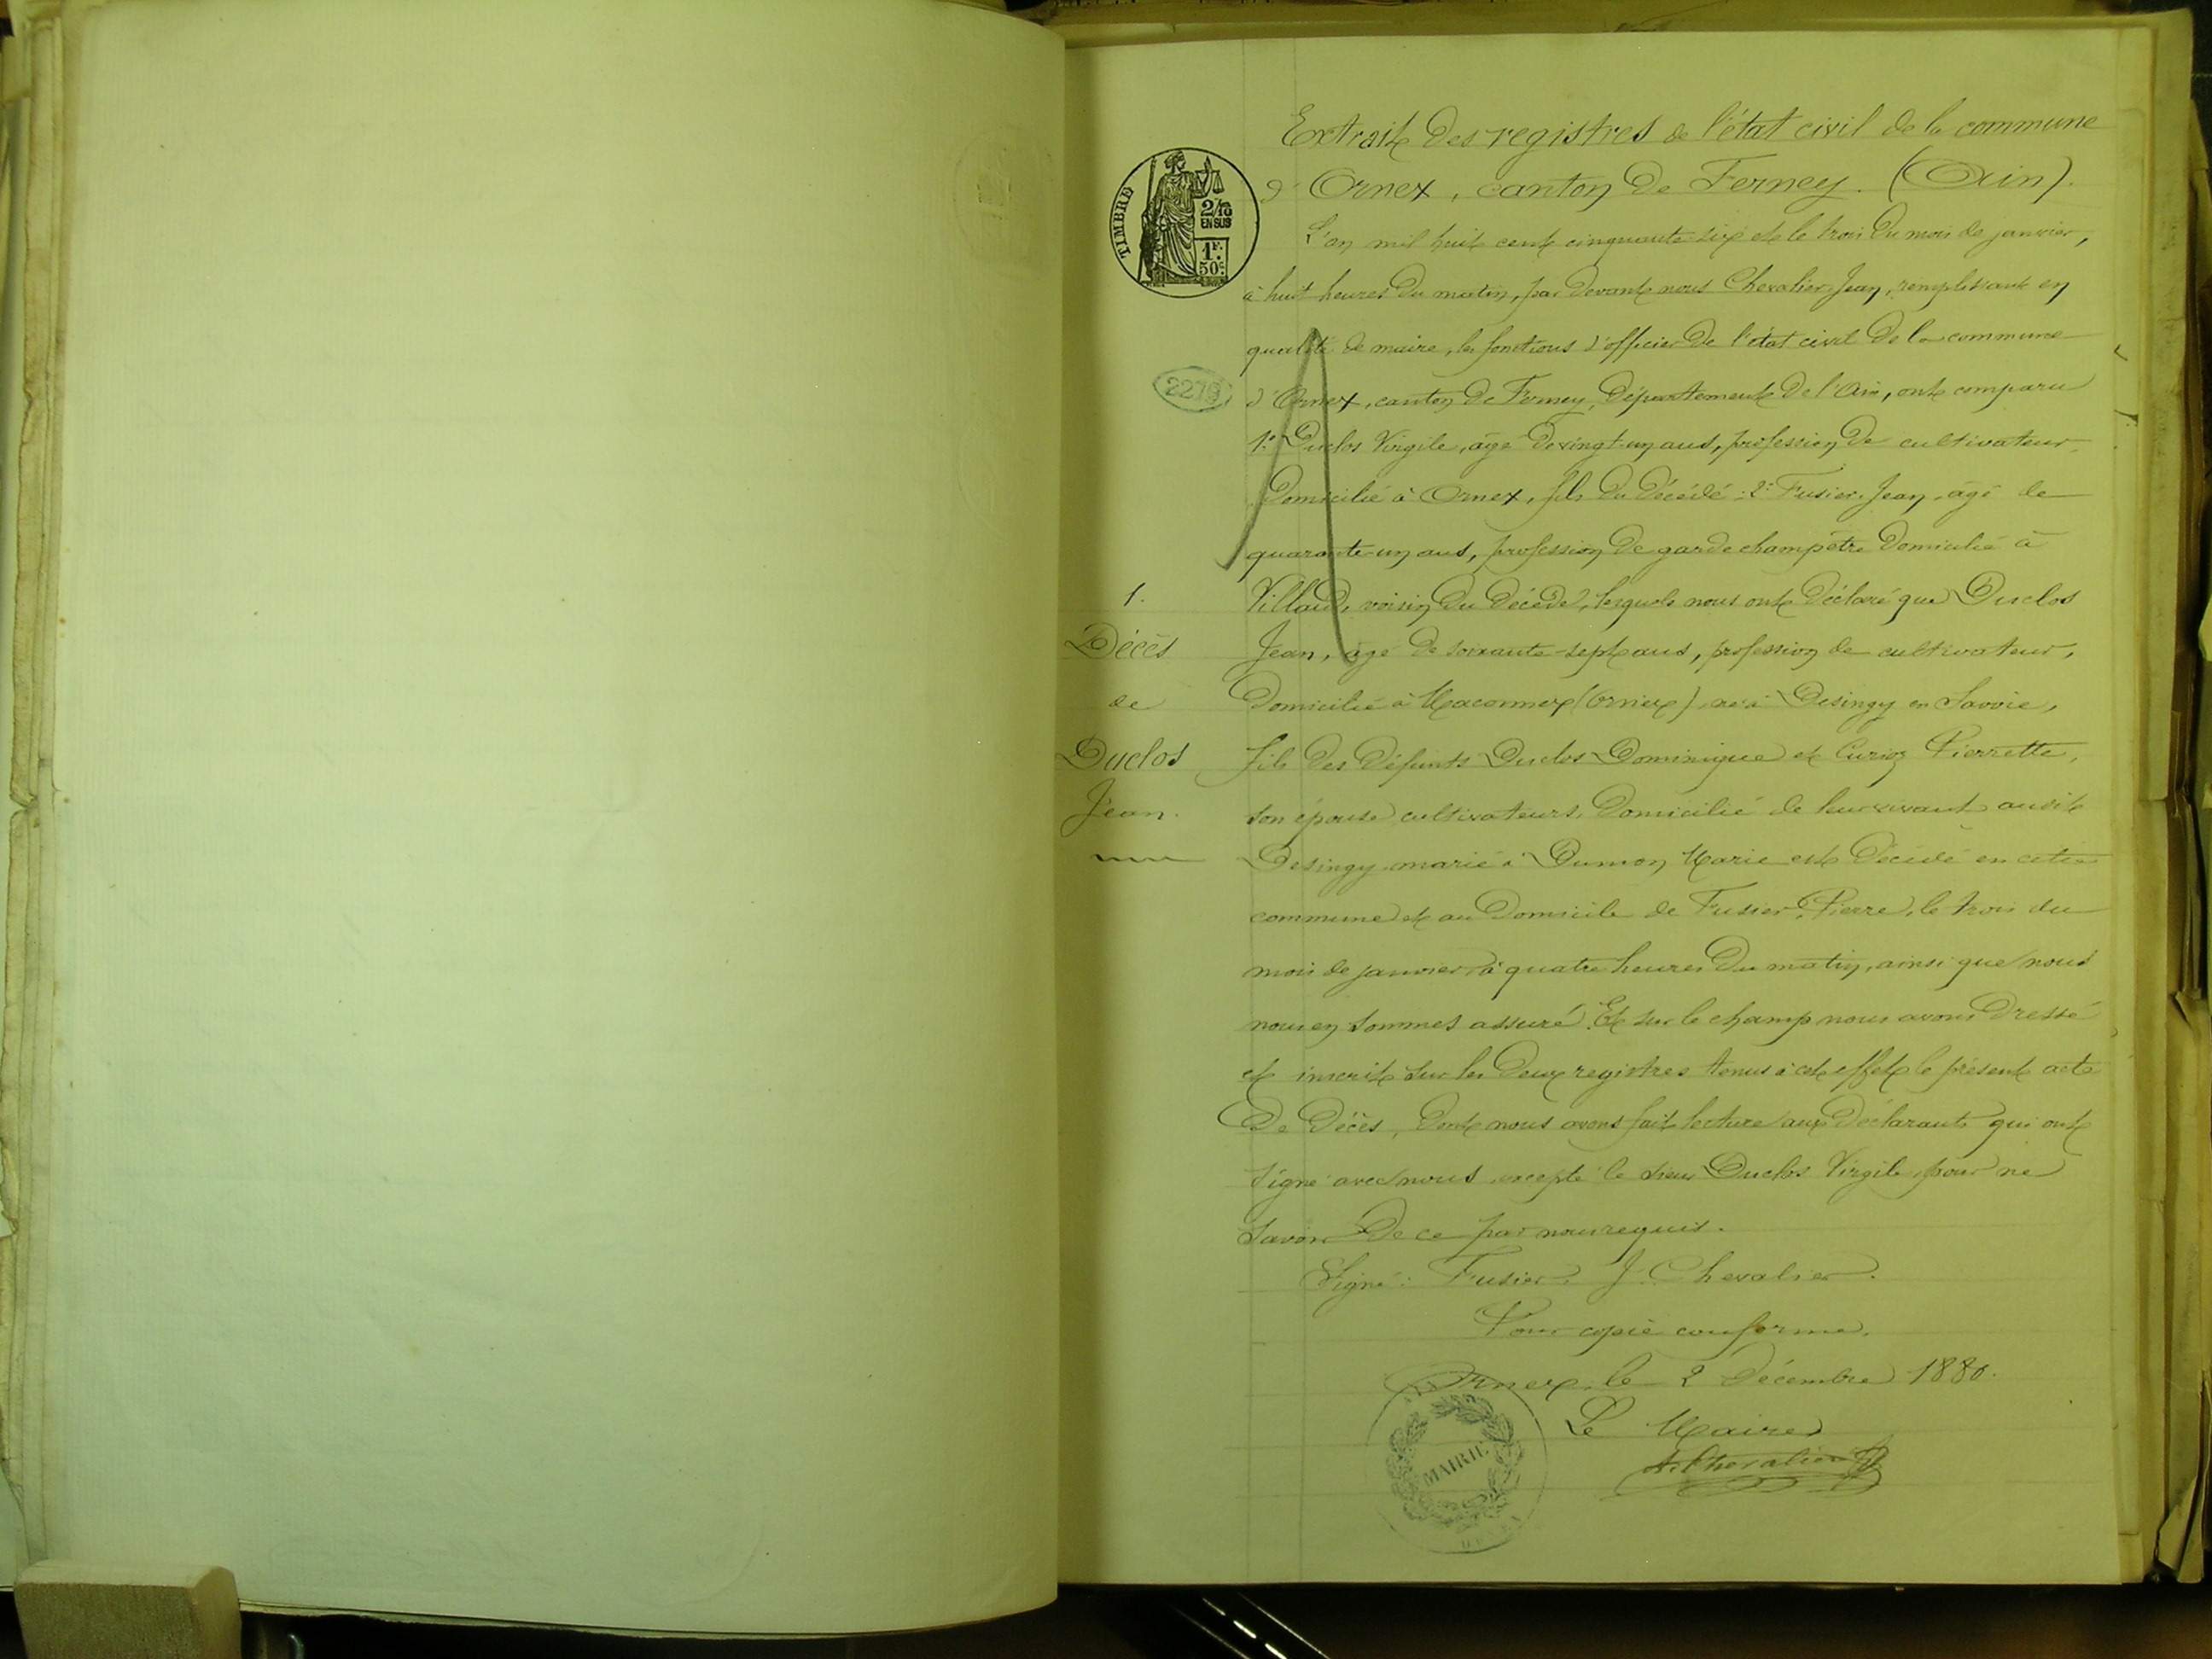 Extrait des registres de l'état civil de la commune
d'Ornex, canton de Ferney. (Ain).
TIMBRE
2/10
EN SUS
1F.
50c.
L'an mil huit cent cinquante six et le trois du mois de janvier,
à huit heures du matin, par devant nous Chevalier Jean, remplissant en
qualité de maire, les fonctions d'officier de l'état civil de la commune
2279
d'Ornex, canton de Ferney, département de l'Ain, ont comparu
1° Duclos Virgile, âgé de vingt-un ans, profession de cultivateur
domicilié à Ornex, fils du décédé : 2° Fusier Jean, âgé de
quarante-un ans, profession de garde champêtre domicilié à
1.
Villard, voisin du décédé, lesquels nous ont déclaré que Duclos
Décès
Jean, âgé de soixante-sept ans, profession de cultivateur,
de
domicilié à Maconnex (Ornex) né à Desingy en Savoie,
Duclos
fils des défunts Duclos Dominique et Pierrette,
Jean.
son épouse cultivateurs, domicilié de leur vivant audit
Desingy marié à Dumon Marie est décédé en cette
commune et au domicile de Fusier Pierre, le trois du
mois de janvier à quatre heures du matin, ainsi que nous
nous en sommes assuré. Et sur le champ nous avons dressé
et inscrit sur les deux registres tenus à cet effet le présent acte
de décès, dont nous avons fait lecture aux déclarants qui ont
signé avec nous excepté le sieur Duclos Virgile, pour ne
savoir de ce par nous requis.
Signé : Fusier. J. Chevalier.
Pour copie conforme.
Ornex, le 2 décembre 1880.
Le Maire
Chevalier
MAIRIE